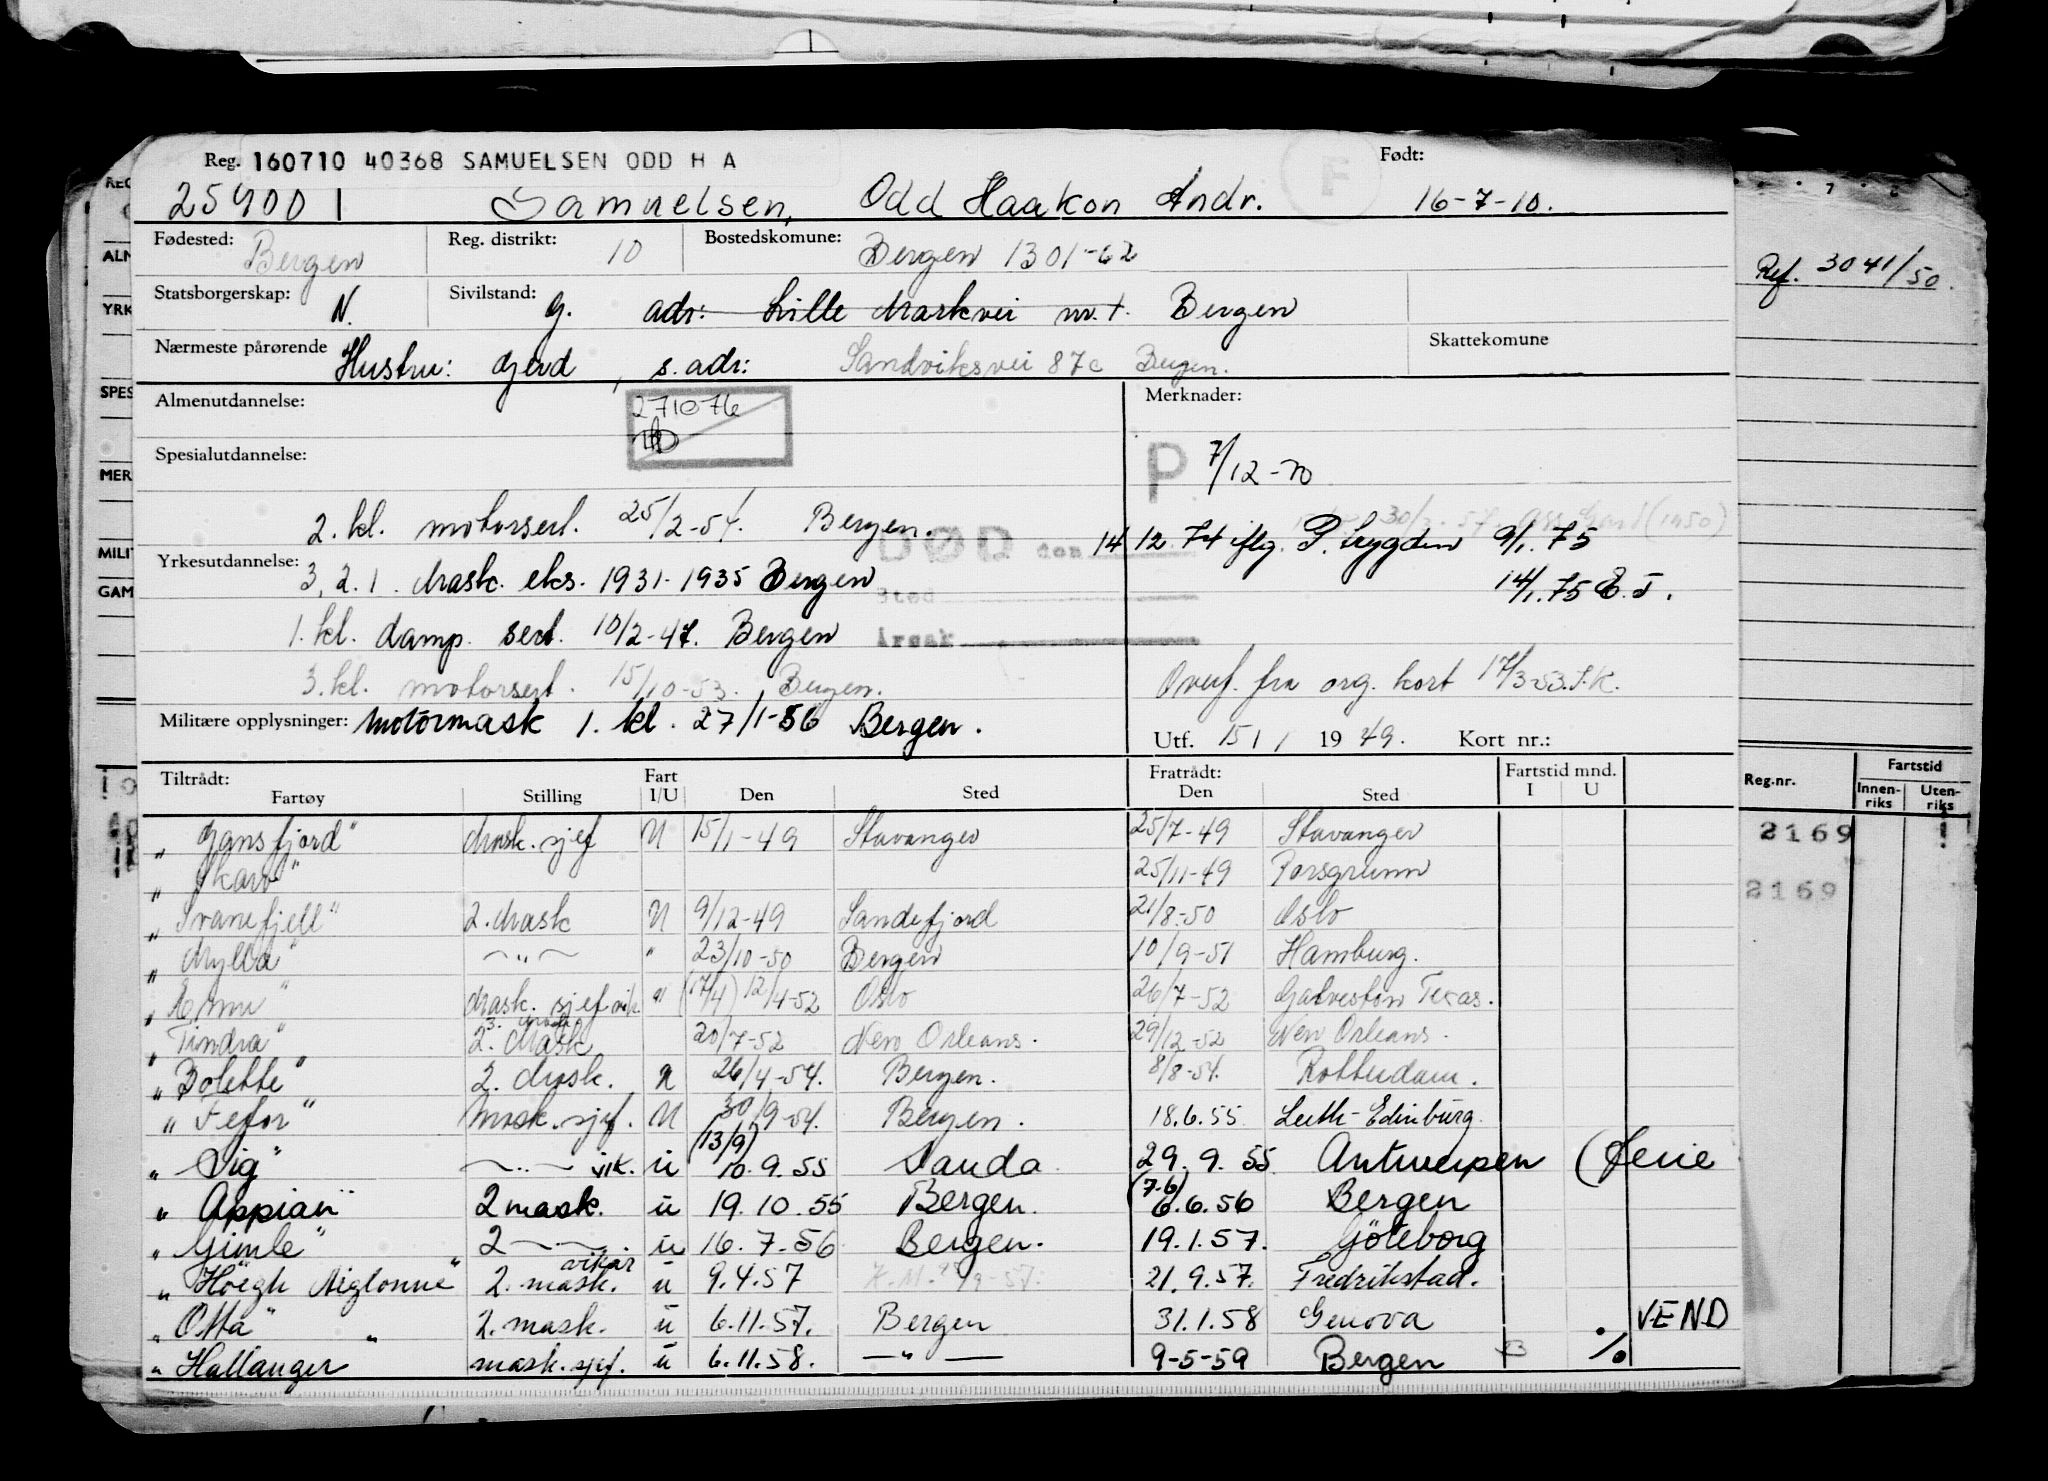 Reg. 160710 40368 SAMUELSEN ODD H A Født:
259001 Samuelsen, Odd Haakon Andr. 16-7-10.
Fødested: Bergen Reg. distrikt: 10 Bostedskomune: Bergen 1301-62
Ref. 3041/50.
Statsborgerskap: N. Sivilstand: g. adr: Lille Markvei nr. 1. Bergen
Nærmeste pårørende Hustru: Gjerd, s. adr: Sandviksvei 87c Bergen. Skattekomune
Almenutdannelse: 271076 Merknader:
Spesialutdannelse: P 7/12-70
2. kl. motorsert. 25/2-54. Bergen.
DØD den 14 12. 74 iflg. P. trygden 9/1. 75
Yrkesutdannelse: 3, 2. 1. Mask. eks. 1931-1935 Bergen
Sted 14/1.75 E.J.
1. kl. damp. sert. 10/2-47. Bergen Årsak
3. kl. motorsert. 15/10-53. Bergen. Overf. fra org. kort 17/3-53.
Militære opplysninger: Motormask 1. kl. 27/1-56 Bergen.
Utf. 15/1 1949. Kort nr.:
Tiltrådt: Fart Fratrådt: Fartstid mnd. Reg.nr. Fartstid
Fartøy Stilling I/U Den Sted Den Sted I U Innen-riks Uten-riks
"Gansfjord" Mask. sjef U 15/1-49 Stavanger 25/7-49 Stavanger 2169
"Skard" 25/11-49 Porsgrunn
"Svanefjell" 2. Mask U 9/12-49 Sandefjord 21/8-50 Oslo 2169
"Mylla" -"- " 23/10-50 Bergen 10/9-51 Hamburg.
"Emu" Mask. sjef vik " (17/4) 12/4-52 Oslo 26/7-52 Galveston Texas.
"Tindra" 2. Mask 20/7-52 New Orleans. 29/12-52 New Orleans.
"Bolette" 2. Mask. U 26/4-54. Bergen. 8/8-54. Rotterdam.
"Fefor" Mask. sjef. U 30/9-54. Bergen. 18.6.55 Leith-Edinburg.
"Sig" -"- vik. u (13/9) 10.9.55 Sauda 29.9.55 Antwerpen (Ferie
"Appian" 2 mask. u 19.10.55 Bergen. (7-6) 6.6.56 Bergen
"Gimle" 2 -"- u 16.7.56 Bergen. 19.1.57. Göteborg
"Höegh Aiglonne" 2. mask. vikar u 9.4.57 21.9.57. Fredrikstad.
"Otta" 2. mask. u 6.11.57. Bergen 31.1.58 Genova VEND
"Hallanger" mask. sjef. u 6.11.58. -"- 9-5-59 Bergen %